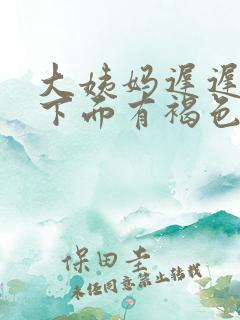 大姨妈迟迟
下而有褐色
保田圭
未经同意禁止转载